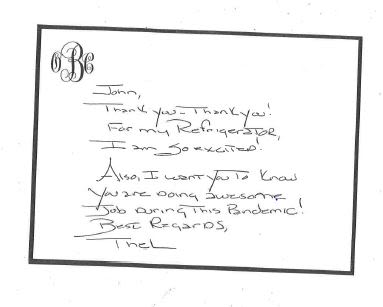 OBC
John,
Thank you - Thank you!
For my Refrigerator,
I am so excited!
Also, I want you to know
you are doing awesome
Job During This Pandemic!
Best Regards,